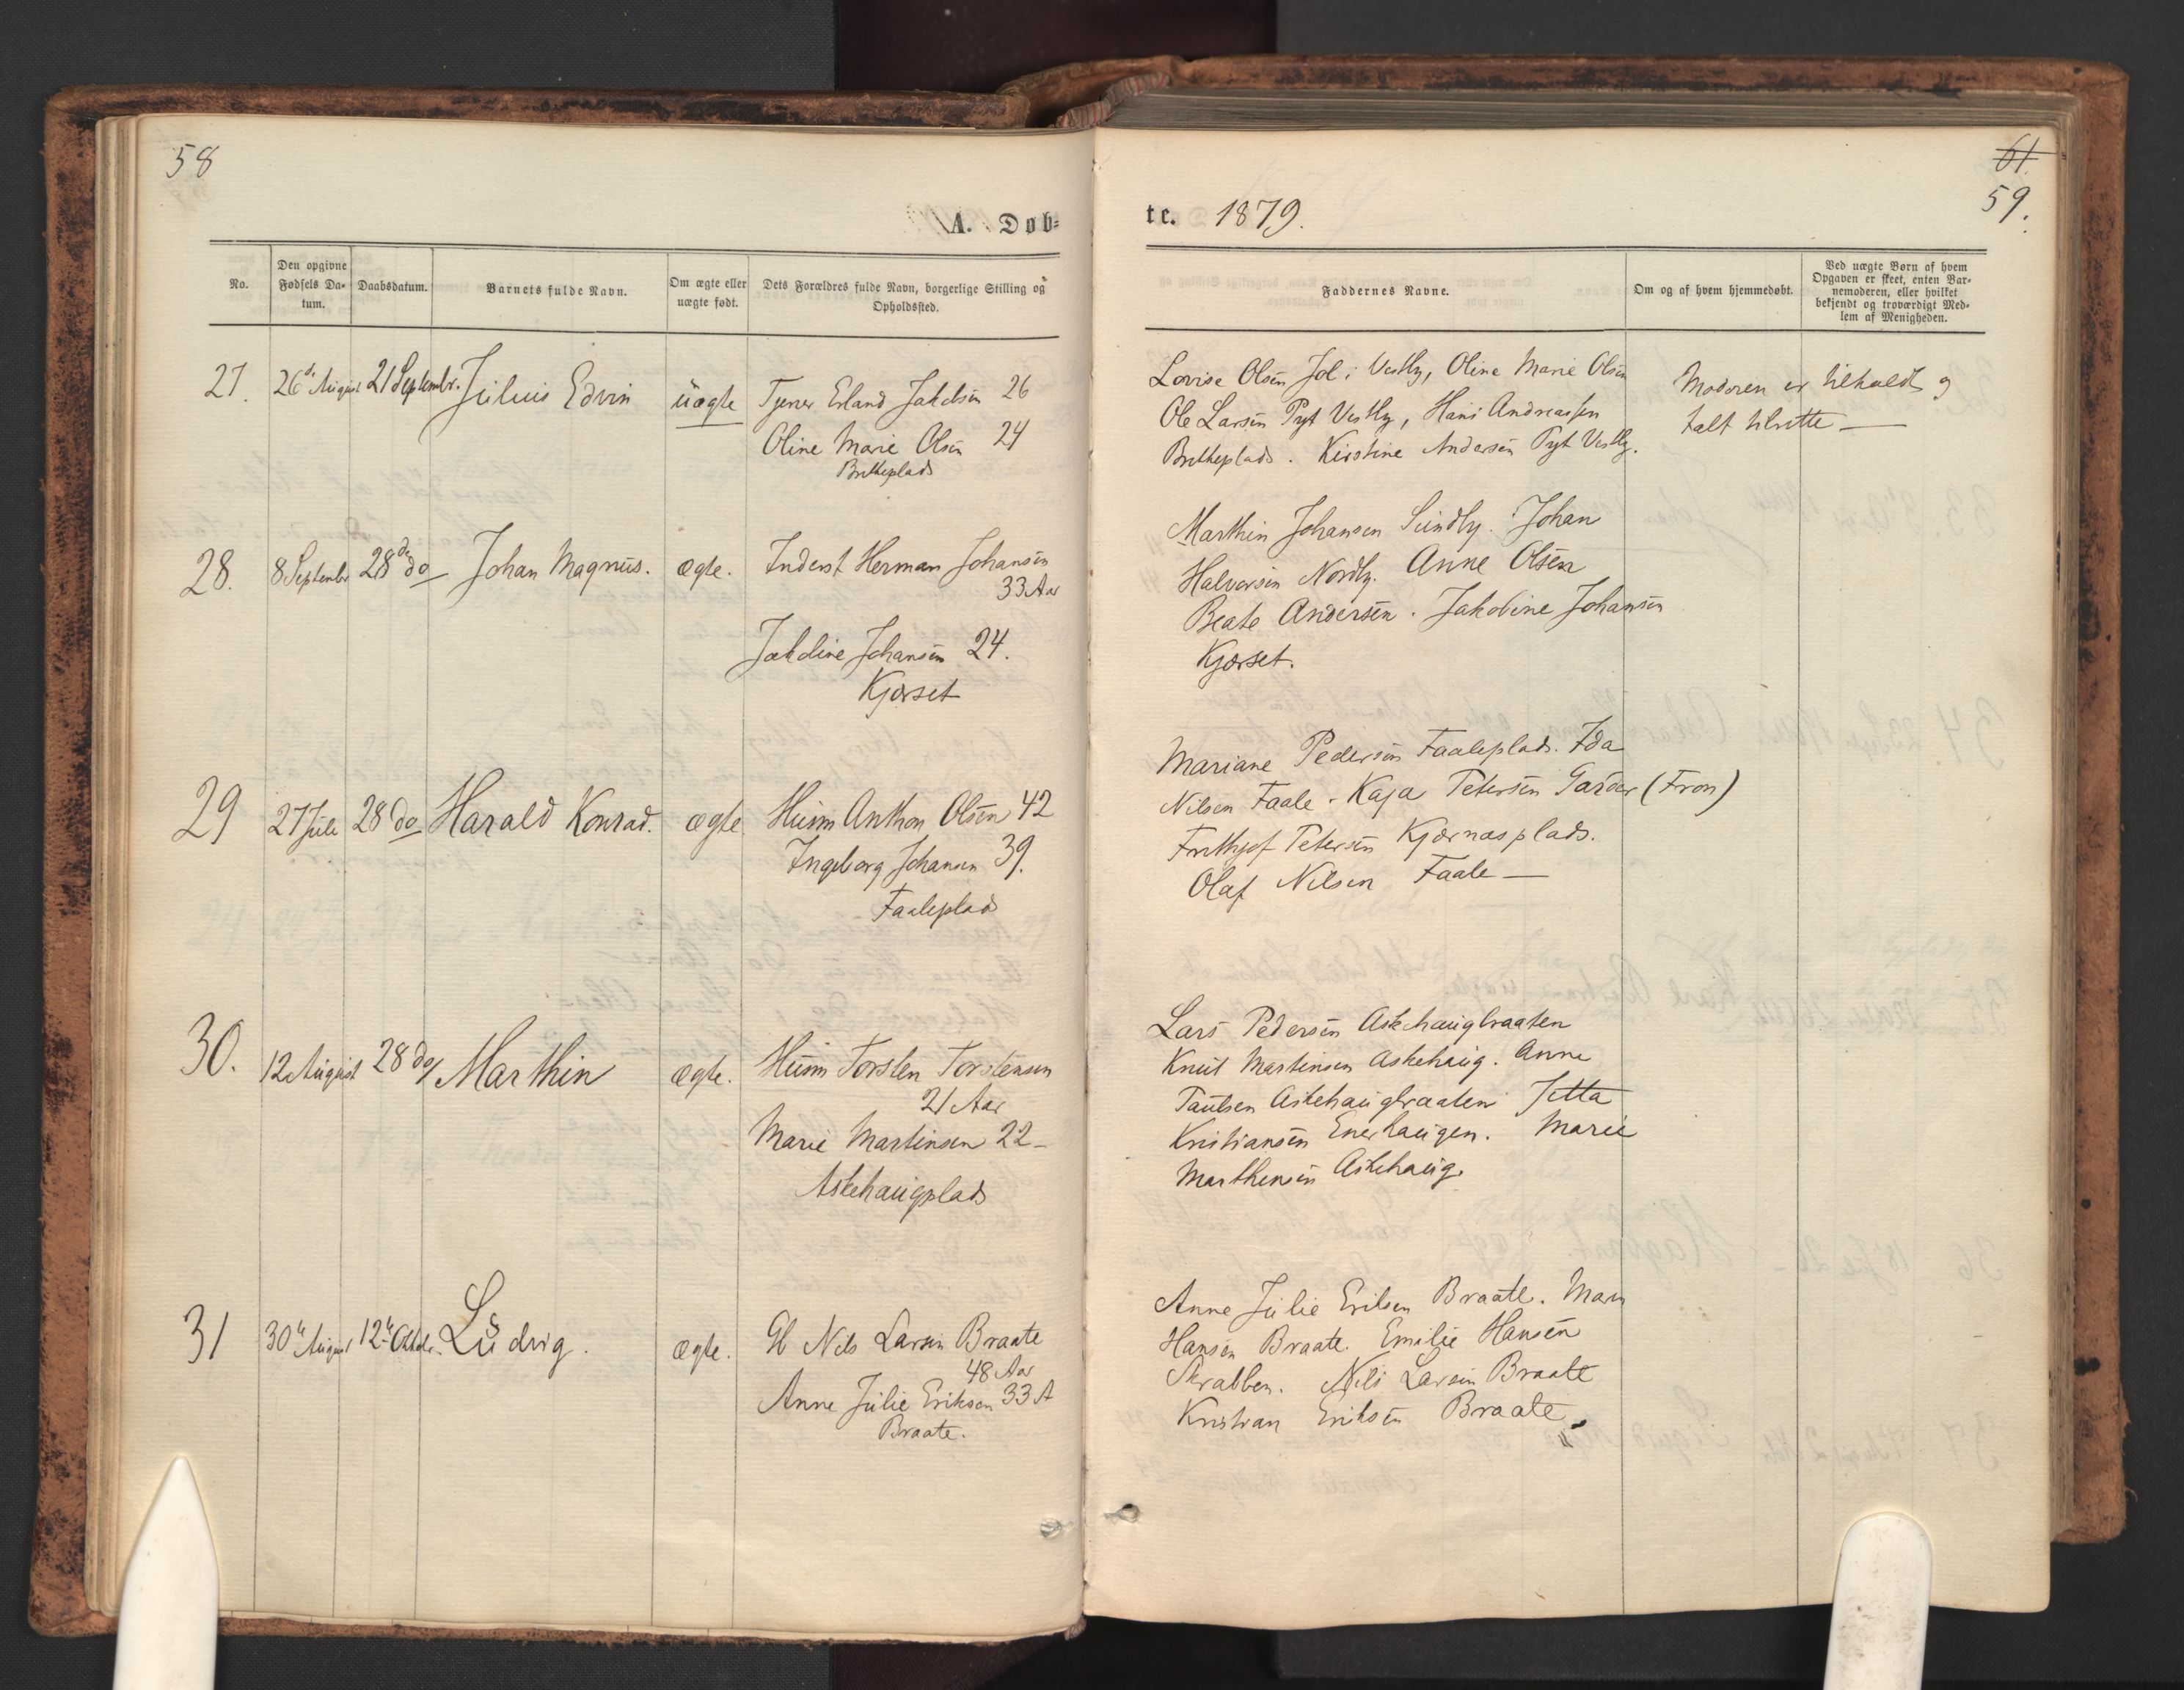 58
A. Døb-
No.
Den opgivne Fødsels Da-tum.
Daabsdatum.
Barnets fulde Navn.
Om ægte eller uægte født.
Dets Forældres fulde Navn, borgerlige Stilling og Opholdssted.
27. 26de August 21 Septembr. Julius Edvin uægte Tjener Erland Jakobsen 26
Oline Marie Olsen 24
Brekkeplads
28. 8 Septembr 28de do Johan Magnus. ægte. Inderst Herman Johansen
33 Aar
Jakobine Johansen 24.
Kjærset
29 27 Juli 28 do Harald Konrad. ægte Husm Anthon Olsen 42
Ingeborg Johansen 39.
Faaleplads
30. 12 August 28 do/ Marthin ægte. Husm Torsten Torstensen
21 Aar
Marie Martinsen 22 -
Askehaugplads
31 30te August 12te Oktobr. Ludvig. ægte. Gb Nils Larsen Braate
48 Aar
Anne Julie Eriksen 33 A
Braate.
61.
59.
te. 1879.
Faddernes Navne.
Om og af hvem hjemmedøbt.
Ved uægte Børn af hvem
Opgaven er skeet, enten Bar-
nemoderen, eller hvilket
bekjendt og troværdigt Med-
lem af Menigheden.
Lovise Olsen Jol i Vestby, Oline Marie Olsen
Ole Larsen Pyt Vestby, Hans Andreassen
Brekkeplads. Kirstine Andersen Pyt Vestby.
Moderen er tilholdt og
talt tilrette —
Marthin Johansen Sundby. Johan
Halvorsen Nordby. Anne Olsen
Beate Andersen. Jakobine Johansen
Kjærset.
Mariane Pedersen Faaleplads. Ida
Nilsen Faale. Kaja Petersen Garder (Fron)
Frithjof Petersen Kjærnæsplads.
Olaf Nilsen Faale —
Lars Pedersen Askehaugbraaten
Knut Martinsen Askehaug. Anne
Paulsen Askehaugbraaten Jetta
Kristiansen Enerhaugen. Marie
Marthinsen Askehaug.
Anne Julie Eriksen Braate. Maren
Hansen Braate. Emilie Hansen
Skrabben. Nils Larsen Braate
Kristian Eriksen Braate.